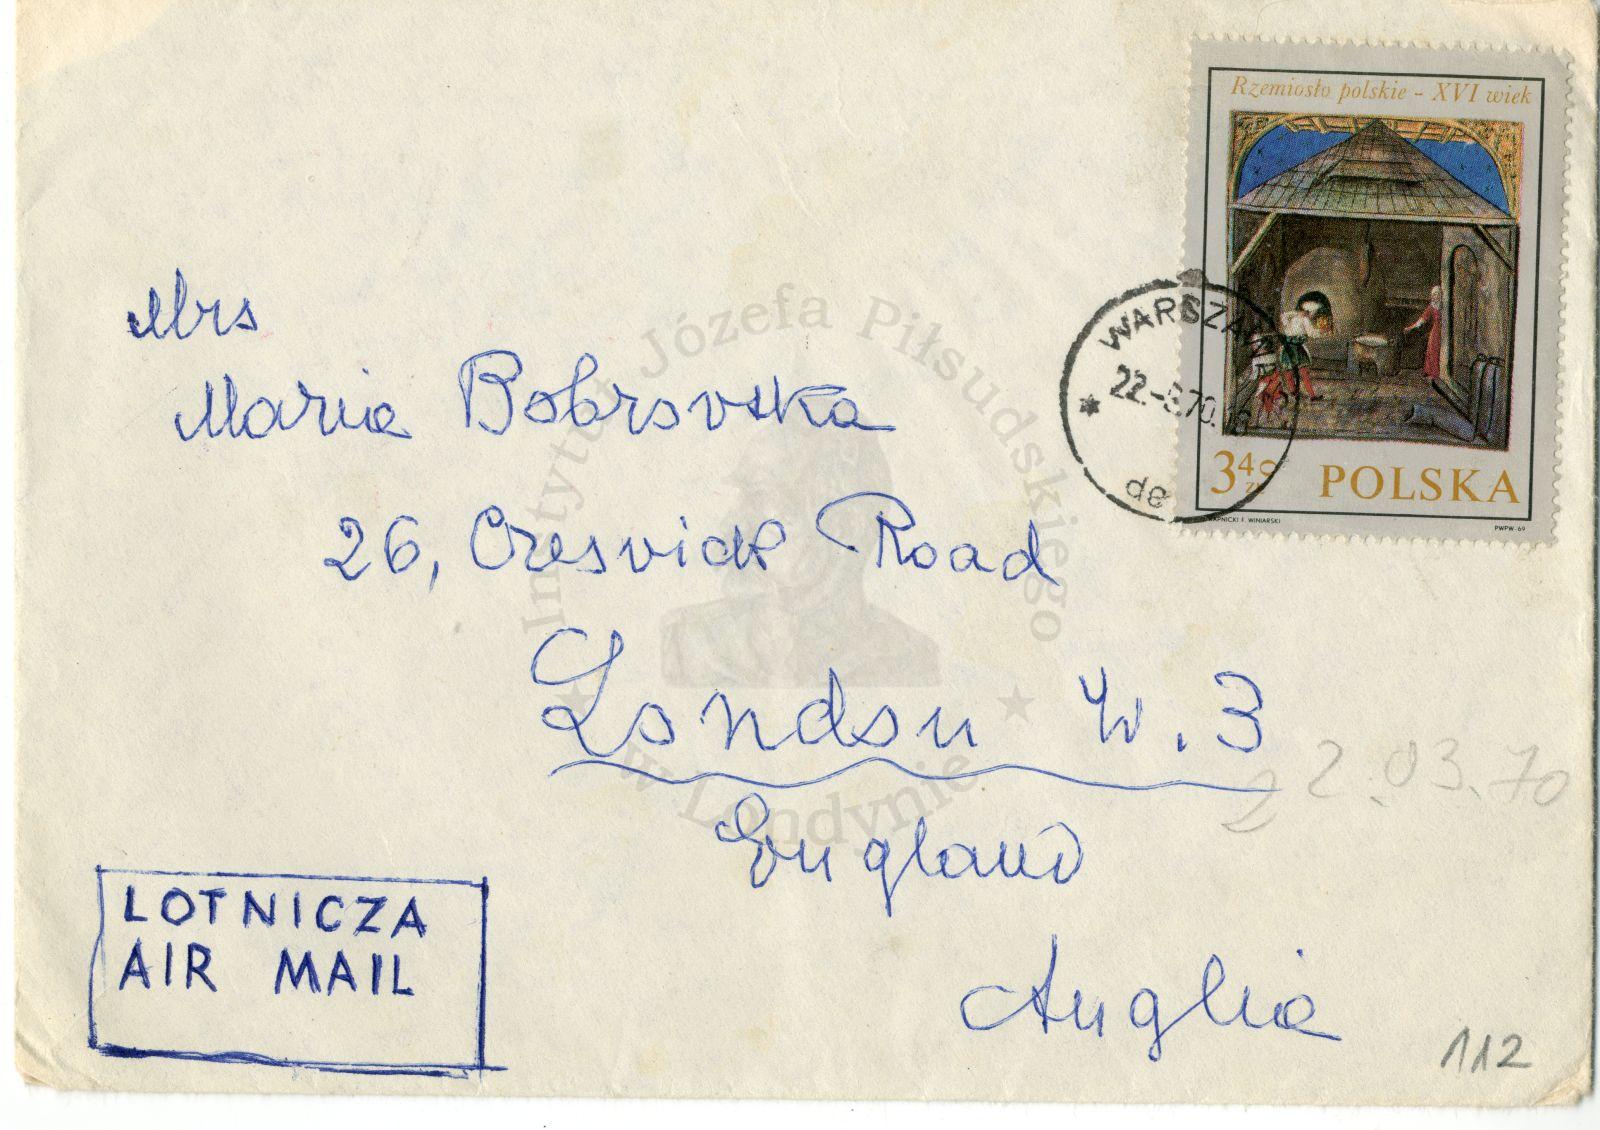 Rzemiosło polskie - XVI wiek
3 40 ZŁ POLSKA
F. WINIARSKI PWPW-69
WARSZAWA
22.-5.70.
de
Mrs
Maria Bobrowska
26, Creswick Road
London W. 3
England
Anglia
22.03.70
LOTNICZA
AIR MAIL
112
Instytut Józefa Piłsudskiego
w Londynie